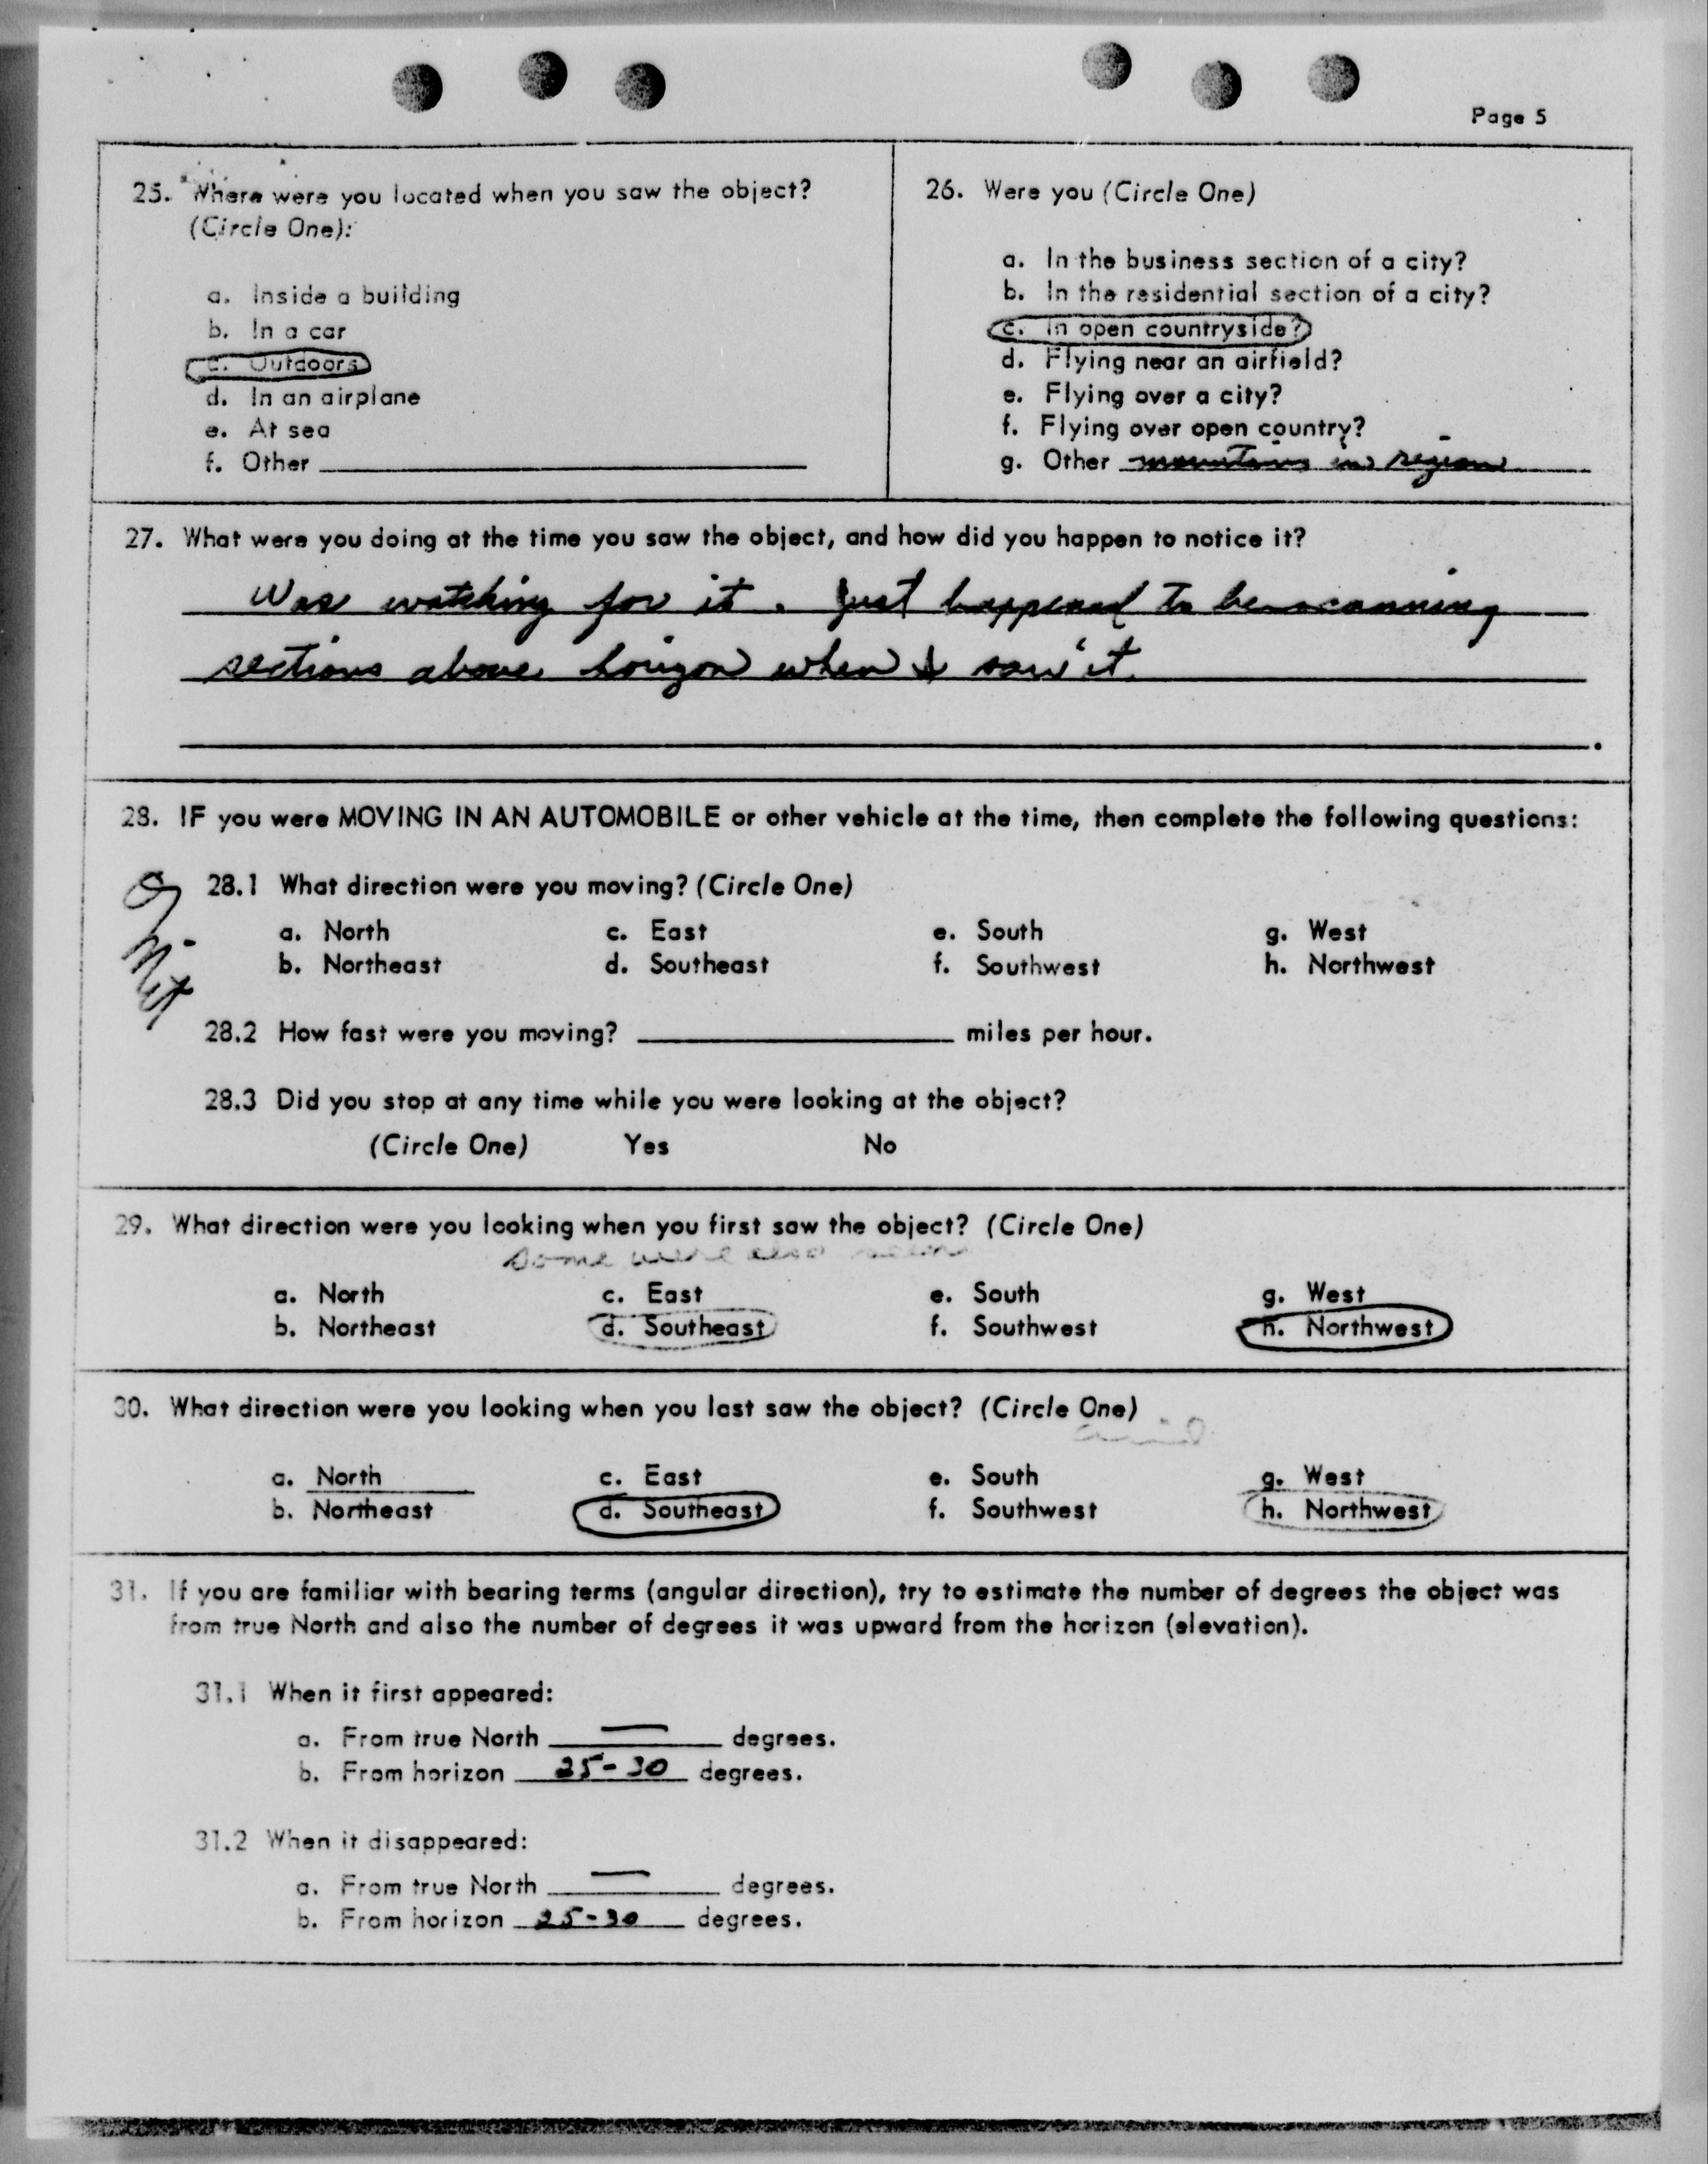 Page 5
25. Where were you located when you saw the object?
(Circle One):
a. Inside a building
b. In a car
c. Outdoors
d. In an airplane
e. At sea
f. Other
26. Were you (Circle One)
a. In the business section of a city?
b. In the residential section of a city?
c. In open countryside?
d. Flying near an airfield?
e. Flying over a city?
f. Flying over open country?
g. Other mountains in region
27. What were you doing at the time you saw the object, and how did you happen to notice it?
Was watching for it. Just happened to be scanning
sections above horizon when I saw it.
28. IF you were MOVING IN AN AUTOMOBILE or other vehicle at the time, then complete the following questions:
28.1 What direction were you moving? (Circle One)
a. North c. East e. South g. West
b. Northeast d. Southeast f. Southwest h. Northwest
28.2 How fast were you moving? miles per hour.
28.3 Did you stop at any time while you were looking at the object?
(Circle One) Yes No
29. What direction were you looking when you first saw the object? (Circle One)
some were also seen
a. North c. East e. South g. West
b. Northeast d. Southeast f. Southwest h. Northwest
30. What direction were you looking when you last saw the object? (Circle One)
a. North c. East e. South g. West
b. Northeast d. Southeast f. Southwest h. Northwest
31. If you are familiar with bearing terms (angular direction), try to estimate the number of degrees the object was
from true North and also the number of degrees it was upward from the horizon (elevation).
31.1 When it first appeared:
a. From true North — degrees.
b. From horizon 25-30 degrees.
31.2 When it disappeared:
a. From true North — degrees.
b. From horizon 25-30 degrees.